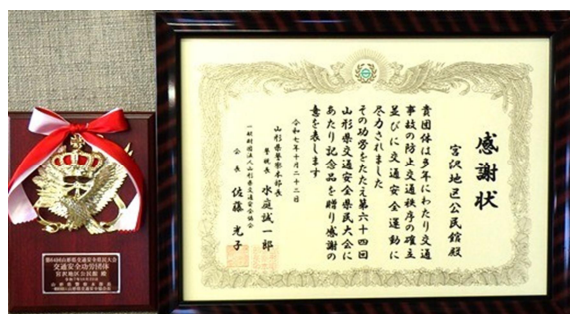 感謝状
宮沢地区公民館殿
貴団体は多年にわたり交通
事故の防止交通秩序の確立
並びに交通安全運動に
尽力されました
その功労をたたえ第六十四回
山形県交通安全県民大会に
あたり記念品を贈り感謝の
意を表します
令和七年十月二十二日
山形県警察本部長
警視長 水庭誠一郎
一般財団法人山形県交通安全協会
会長 佐藤光子
第64回山形県交通安全県民大会
交通安全功労団体
宮沢地区公民館 殿
山形県警察本部長